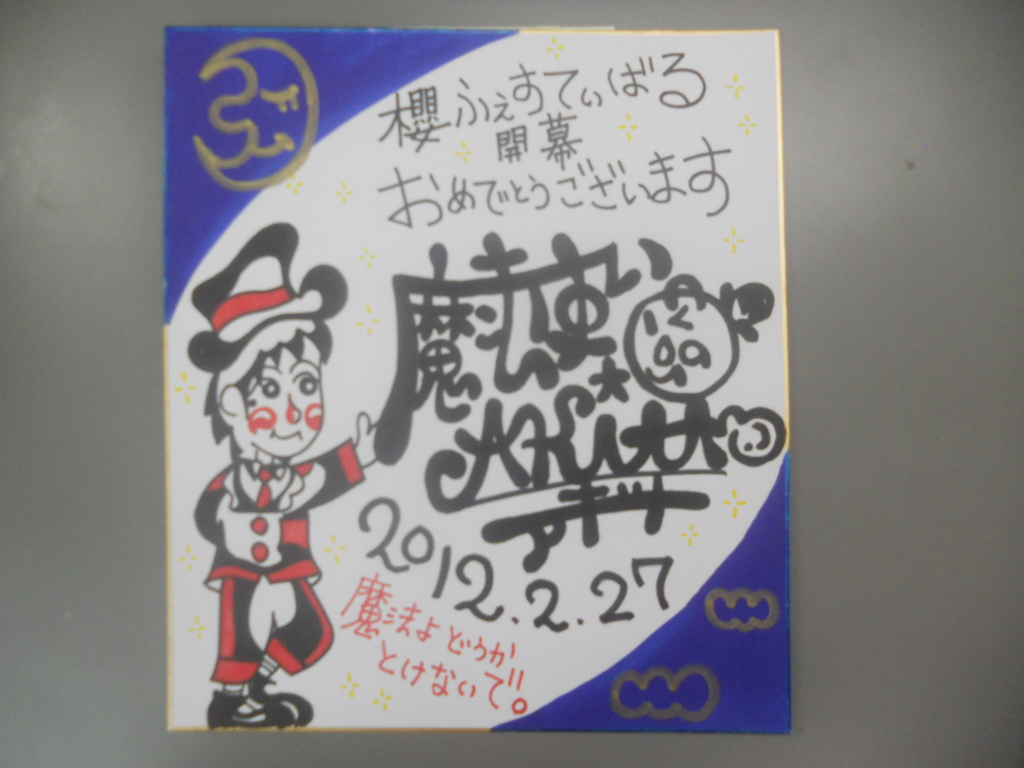 櫻ふぇすてぃばる
開幕
おめでとうございます
魔法使い
★
AKIット
アキット
2012.2.27
魔法よどうか
とけないで!!。